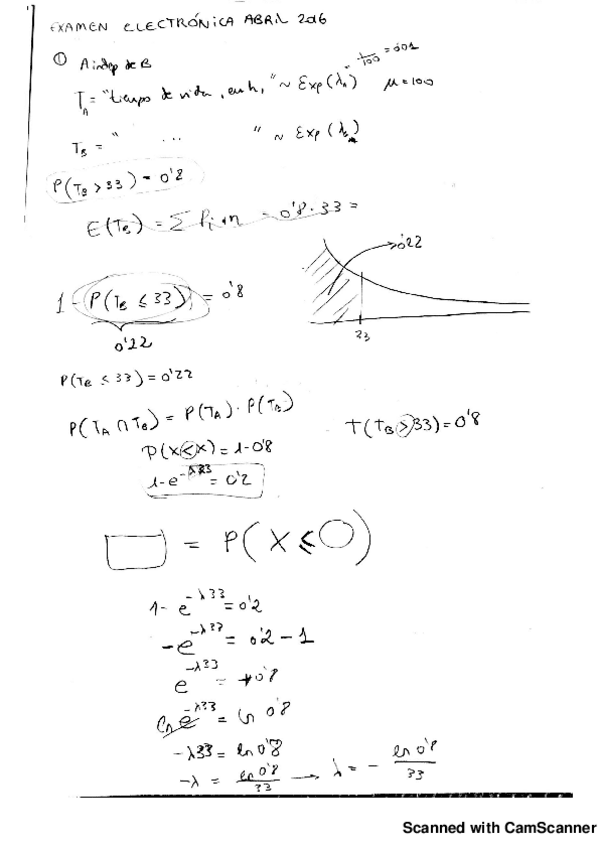 EXAMEN ELECTRÓNICA ABRIL 2016
① A indep de B
T_A = "tiempo de vida, en h," ~ Exp(λ_A) 1/100 = 0'01 μ = 100
T_B = " ... " ~ Exp(λ_B)
P(T_B > 33) = 0'8
E(T_B) = Σ Pi · n = 0'8 · 33 =
0'22
1 - P(T_B ≤ 33) = 0'8
0'22
33
P(T_B ≤ 33) = 0'22
P(T_A ∩ T_B) = P(T_A) · P(T_B)
T(T_B > 33) = 0'8
P(X < x) = 1 - 0'8
1 - e^{-λ33} = 0'2
□ = P(X ≤ ○)
1 - e^{-λ33} = 0'2
-e^{-λ33} = 0'2 - 1
e^{-λ33} = +0'8
ln e^{-λ33} = ln 0'8
-λ33 = ln 0'8
-λ = ln 0'8 / 33 → λ = - ln 0'8 / 33
Scanned with CamScanner